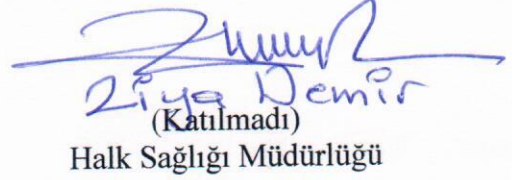 Ziya Demir
(Katılmadı)
Halk Sağlığı Müdürlüğü